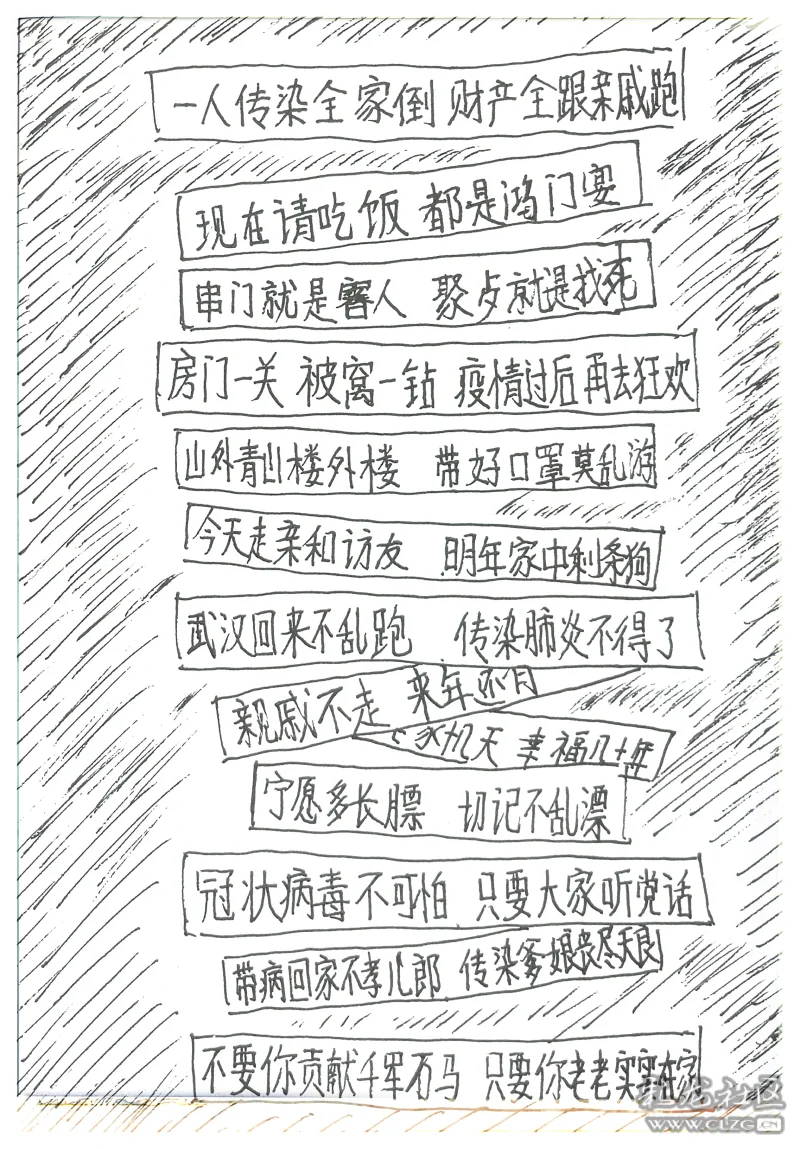 一人传染全家倒 财产全跟亲戚跑
现在请吃饭 都是鸿门宴
串门就是害人 聚歺就是找死
房门一关 被窝一钻 疫情过后再去狂欢
山外青山楼外楼 带好口罩莫乱游
今天走亲和访友 明年家中剩条狗
武汉回来不乱跑 传染肺炎不得了
親戚不走 来年还
家几天 幸福几十年
宁愿多长膘 切记不乱漂
冠状病毒不可怕 只要大家听党话
带病回家不孝儿郎 传染爹娘丧尽天良
不要你贡献千军石马 只要你老老实实在家
社区
WWW.CLZG.CN